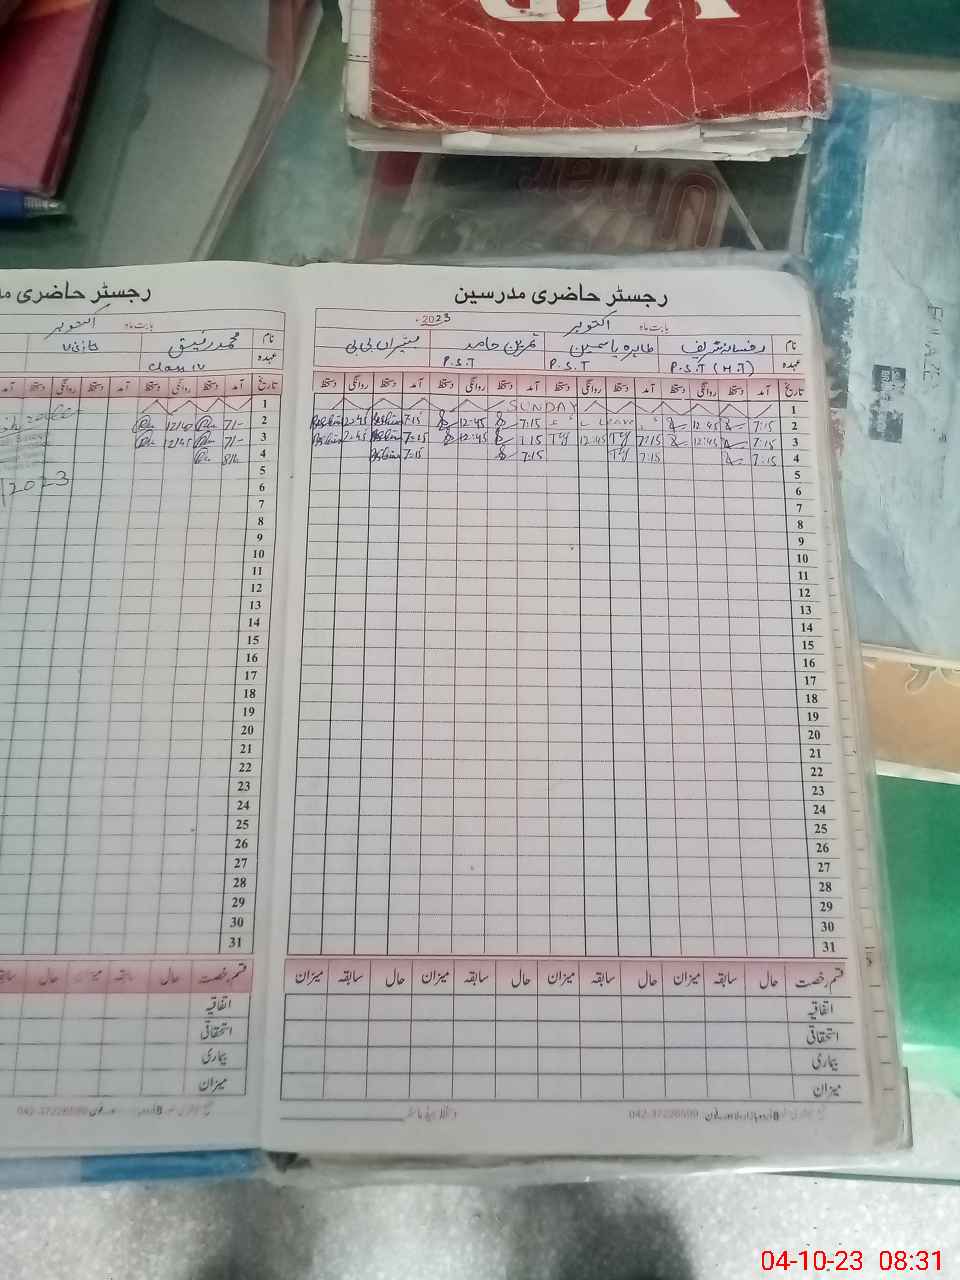 VIP
Umar
رجسٹر حاضری مدرسین
بابت ماہ اکتوبر 2023
نام رفسانہ شریف طاہرہ یاسمین ثمرین حامد
عہدہ P.S.T (H.T) P.S.T P.S.T
تاریخ آمد دستخط روانگی دستخط آمد دستخط روانگی دستخط آمد دستخط روانگی دستخط آمد دستخط روانگی دستخط
1 SUNDAY
2 7:15 12:45 Leave 7:15 12:45 7:15 12:45
3 7:15 12:45 7:15 12:45 7:15 12:45 7:15 2:45
4 7:15 7:15 7:15 7:15
5
6
7
8
9
10
11
12
13
14
15
16
17
18
19
20
21
22
23
24
25
26
27
28
29
30
31
قسم رخصت حال سابقہ میزان حال سابقہ میزان حال سابقہ میزان حال سابقہ میزان
اتفاقیہ
استحقاقی
بیماری
میزان
042-37226599
رجسٹر حاضری
بابت ماہ اکتوبر
نام محمد رفیق
عہدہ Class IV
تاریخ آمد دستخط روانگی دستخط آمد دستخط روانگی دستخط آمد
1
2 7/- 12/40
3 7/- 12/45
4 8/-
5
6 2023
7
8
9
10
11
12
13
14
15
16
17
18
19
20
21
22
23
24
25
26
27
28
29
30
31
قسم رخصت حال سابقہ میزان حال
اتفاقیہ
استحقاقی
بیماری
میزان
042-37226599
04-10-23 08:31